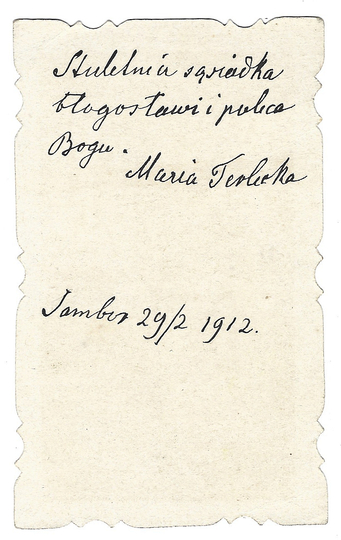 Stuletnia sąsiadka
błogosławi i poleca
Bogu.
Maria Terlecka
Sambor 29/2 1912.